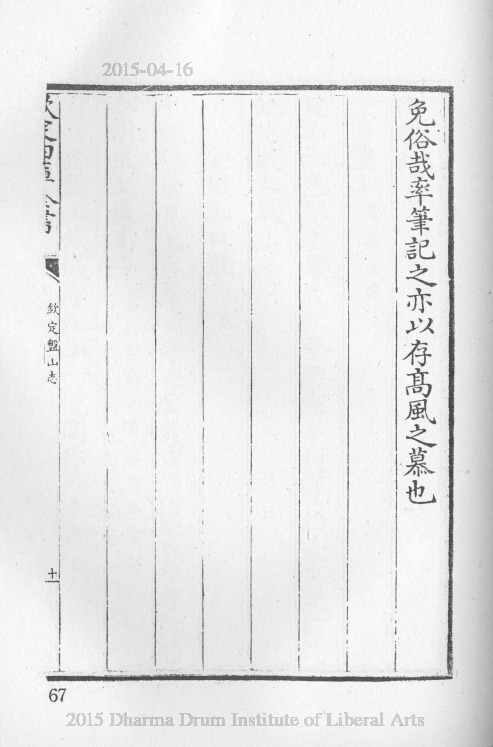 2015-04-16
免俗哉率筆記之亦以存髙風之慕也
欽定四庫全書
欽定盤山志
十
67
2015 Dharma Drum Institute of Liberal Arts